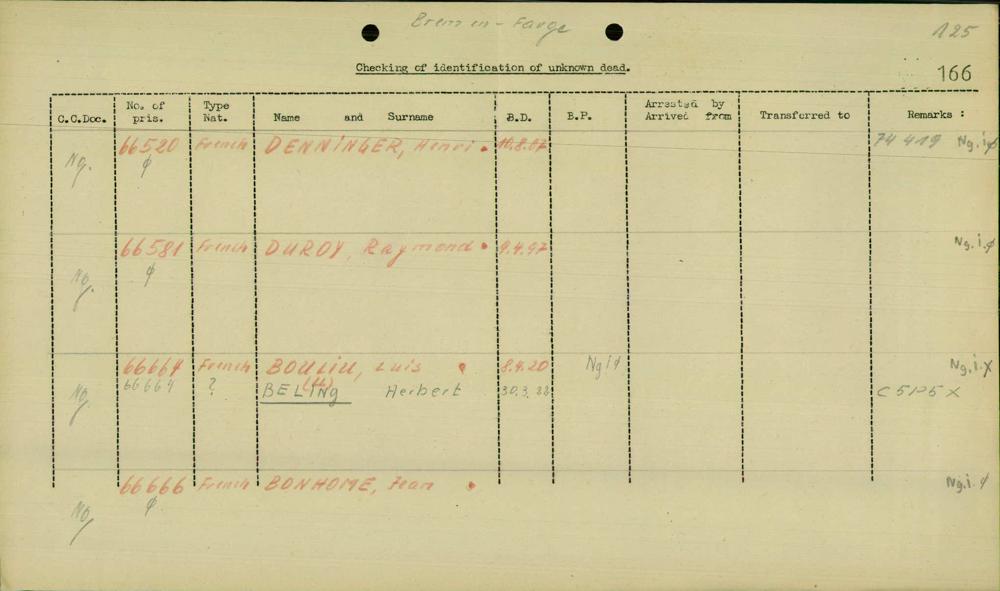 Bremen-Farge
125
Checking of identification of unknown dead.
166
C.C.Doc. No. of pris. Type Nat. Name and Surname B.D. B.P. Arrested by Arrived from Transferred to Remarks :
Ng. 66520 French DENNINGER, Henri 10.8.07 74 419 Ng.i.φ
φ
Ng. 66581 French DUROY, Raymond 9.4.97 Ng.i.φ
φ
66664 French BOULIU, Luis 8.4.20 Ngiφ Ng.i.X
Ng. 66664 ? BELING Herbert 30.3.22 C 5125 X
Ng. 66666 French BONHOME, Jean Ng.i.φ
φ